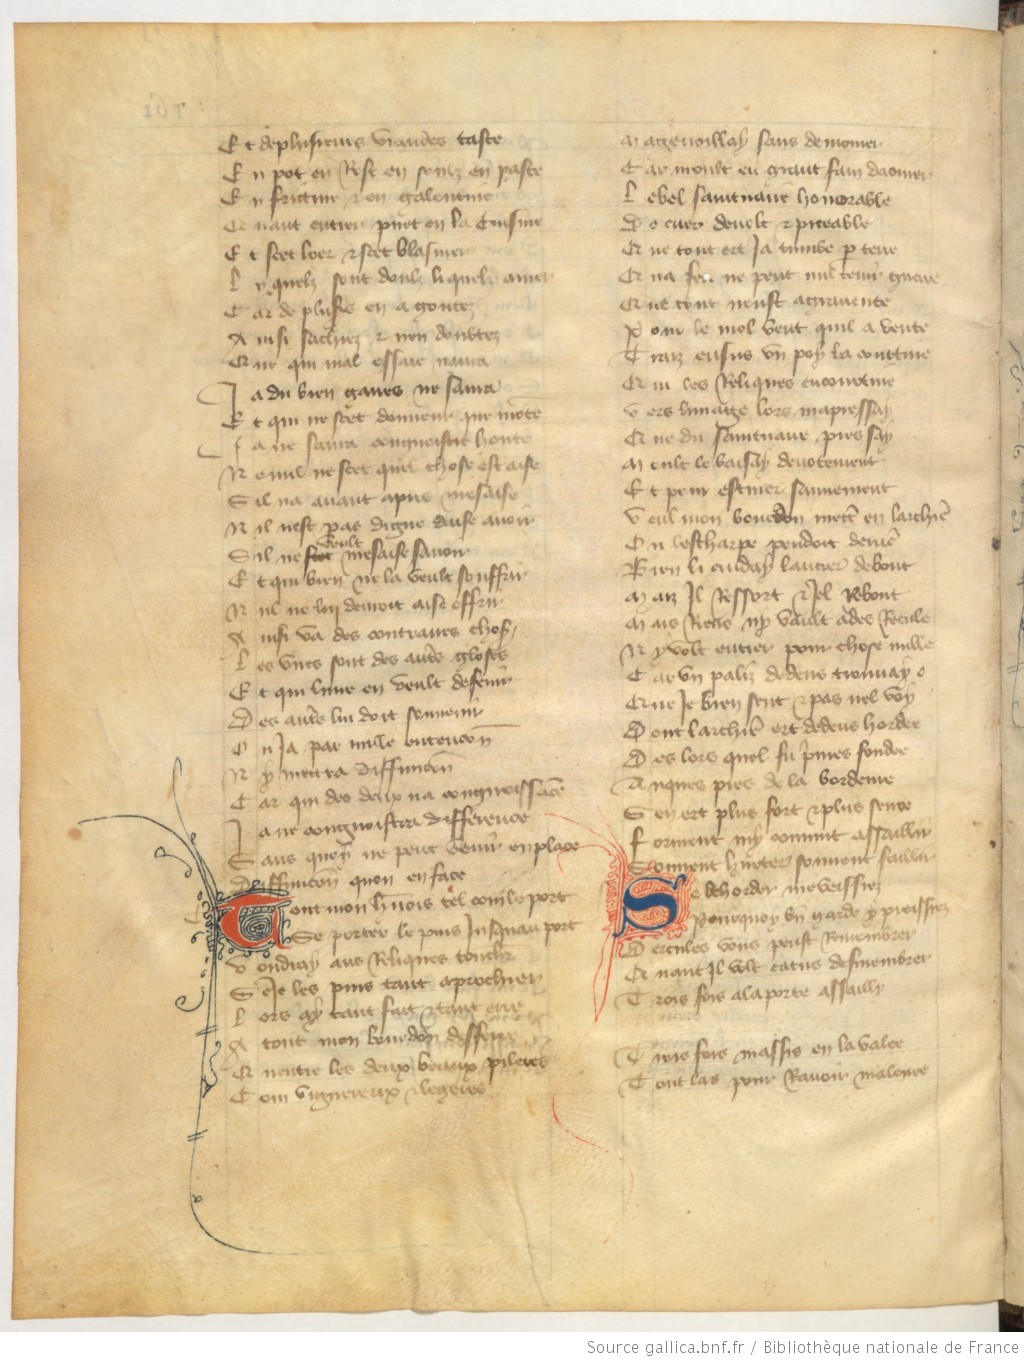 Et de plusieurs viandes taste
En pot en Rost en soulz en paste
En friture & en galentine
Quant entrer puet en la Cuisine
Et scet loer & scet blasmer
Lyquelz sont doulz liquelz amer
Car de plusrs en a goute
Ainsi sachiez & non doubtez
Que qui mal essaie naura
Ja du bien gaires ne saura
Et qui ne scet donneur que monte
Ja ne saura congnoistre honte
Ne nul ne scet quel chose est aise
Sil na avant apris mesaise
Nil nest pas digne daise avoir
Sil ne scet veult mesaise savoir
Et qui bien ne la veult souffrir
Nul ne lui devroit aise offrir
Ainsi va des contraires choses
Les unes sont des autres gloses
Et qui lune en veult defenir
Des autre lui doit souvenir
Ou Ja par nulle entencon
Ny mettra diffinicon
Car qui des deux na congnoissance
Ja ne congnoistra difference
Sans quoy ne peut venir en place
Diffinicon quon en face
Tout mon hrnois tel com le port
Se porter le puis Jusquau port
Vouldray aus Reliques touchr
Se Je les puis tant aprochier
Lors ay tant fait & tant erre
A tout mon bourdon defferre
Quentre les deux beaux pileres
Com vigueureux & legeres
Magenoillay sans demourer
Car moult eu grant fain daourer
Le bel saintuaire honorable
De cuer devolt & piteable
Que tout ert Ja tumbe p terre
Qua feu ne peut nul tenir guerre
Que tout neust agravente
Pour le mol vent quil a vente
Traiz ensus un poy la courtine
Qui les Reliques encourtine
Vers limaige lors mapressay
Que du saintuaire pres say
Mult le baisay devotement
Et pour estuier sainement
Veul mon bourdon metre en larchiere
Ou lescharpe pendoit deriere
Bien li cuiday lancier debout
Maiz Il Ressort & Jel Rebout
Mais Riens ny vault ades Recule
Ny volt entrer pour chose nulle
Car un paliz dedens trouvay
Que Je bien sent & pas nel voy
Dont larchiere ert dedens hordee
Des lors quel fu primes fondee
Auques pres de la bordeure
Sen ert plus fort & plus seure
Forment my convint assaillir
Souvent hurter souvent faillir
Se behorder me veissiez
Pourquoy bn garde y preissiez
Dercules vous peust Remembrer
Quant Il volt cacus desmembrer
Trois fois a la porte assailly
Trois fois massis en la valee
Tout las pour Ravoir malenee